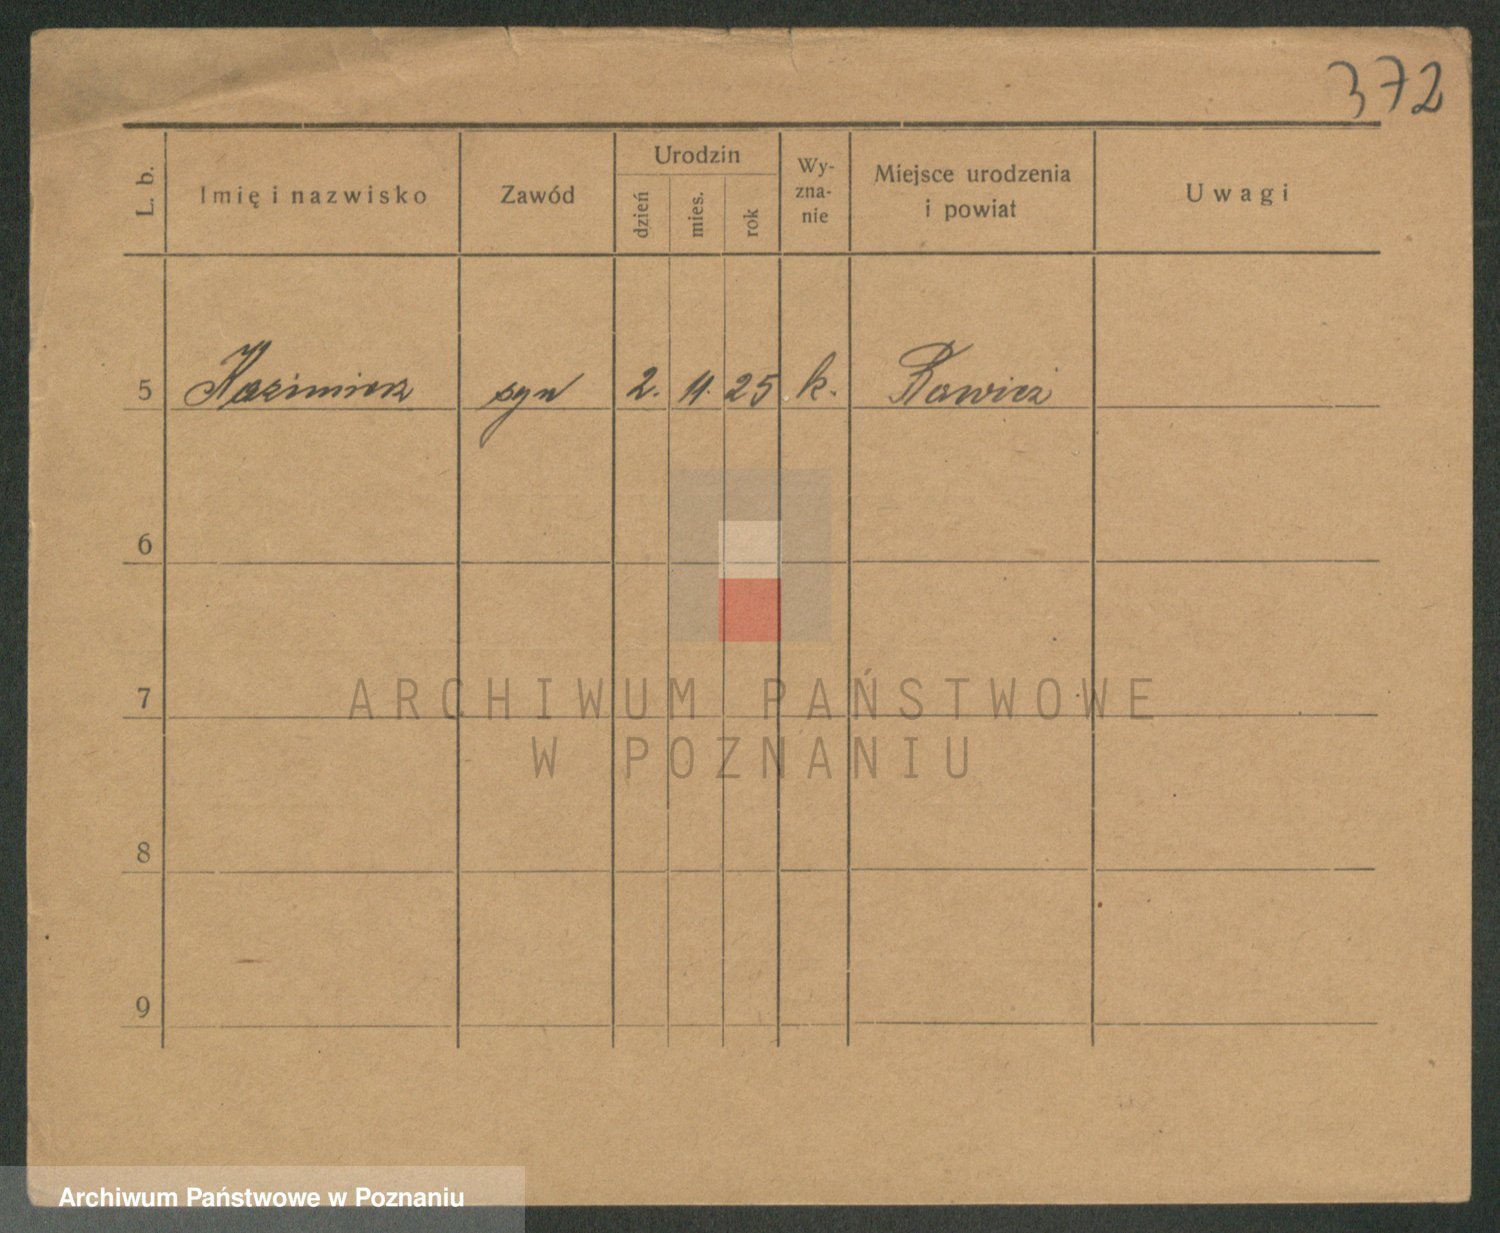 372
L. b. Imię i nazwisko Zawód Urodzin Wy-zna-nie Miejsce urodzenia i powiat Uwagi
dzień mies. rok
5 Kazimierz syn 2. 11. 25 k. Rawicz
6
7
8
9
ARCHIWUM PAŃSTWOWE
W POZNANIU
Archiwum Państwowe w Poznaniu